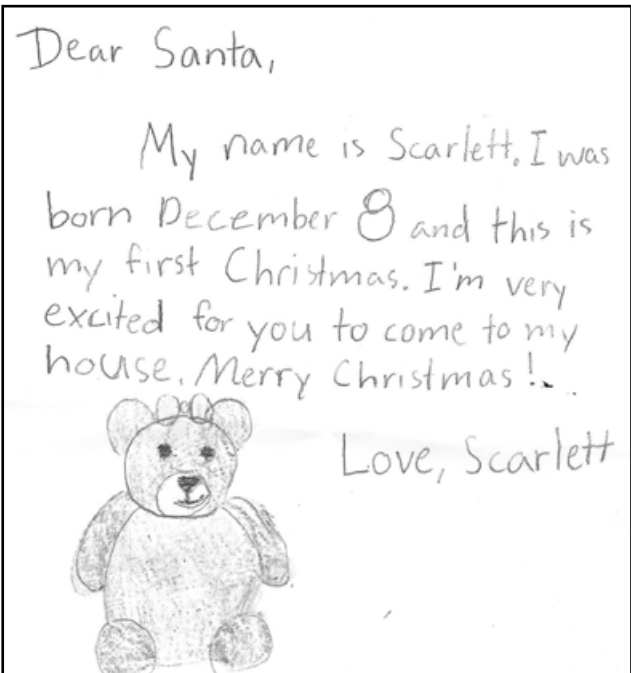 Dear Santa,
My name is Scarlett. I was
born December 8 and this is
my first Christmas. I'm very
excited for you to come to my
house. Merry Christmas!
Love, Scarlett